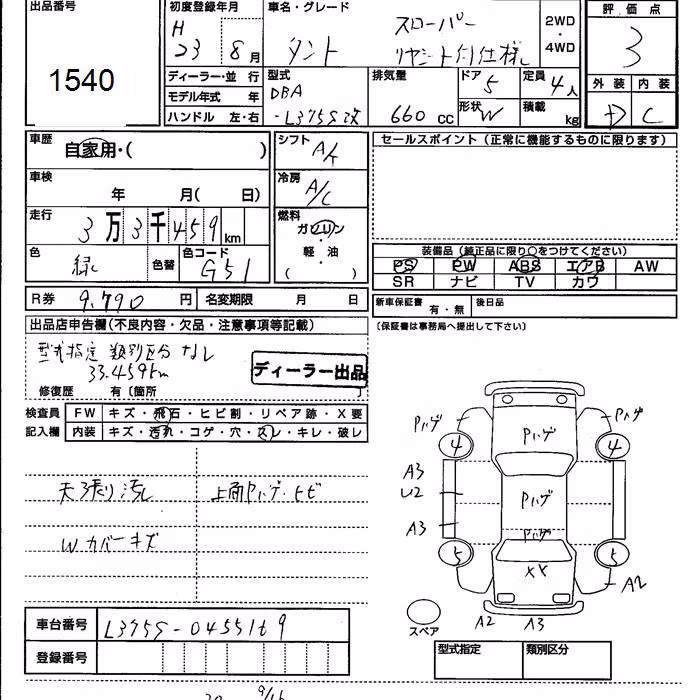 出品番号
1540
初度登録年月
H
23 8月
車名・グレード
スローパー
タント リヤシート付仕様
2WD
・
4WD
評価点
3
外装 内装
D C
ディーラー・並行
モデル年式 年
ハンドル 左・右
型式
DBA
-L375S改
排気量
660 cc
ドア 5
形状 W
定員 4人
積載
kg
車歴
自家用・( )
車検
年 月( 日)
走行
3万3千459km
色
緑
色替
色コード
G51
シフト
A/T
冷房
A/C
燃料
ガソリン
・
軽油
( )
セールスポイント(正常に機能するものに限ります)
装備品(純正品に限り○をつけてください)
PS PW ABS エアB AW
SR ナビ TV カワ
R券 9,790 円 名変期限 月 日
新車保証書 有・無 後日品
(保証書は事務局へ提出して下さい)
出品店申告欄(不良内容・欠品・注意事項等記載)
型式指定 類別区分 なし
33.459km
ディーラー出品
修復歴 有〔箇所 〕
検査員
記入欄
FW キズ・飛石・ヒビ割・リペア跡・X要
内装 キズ・汚れ・コゲ・穴・スレ・キレ・破レ
天張り汚レ
上面Pハゲ・ヒビ
Wカバーキズ
Pハゲ
4
Pハゲ
Pハゲ
4
A3
U2
Pハゲ
A3
Pハゲ
5
XX
5
A2
スペア
A2 A3
車台番号 L375S-0455169
登録番号
型式指定 類別区分
9/16